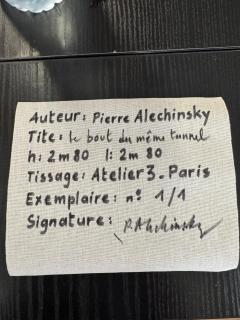 Auteur: Pierre Alechinsky
Titre: le bout du même tunnel
h: 2m80 l: 2m 80
Tissage: Atelier 3. Paris
Exemplaire: n° 1/1
Signature: P. Alechinsky